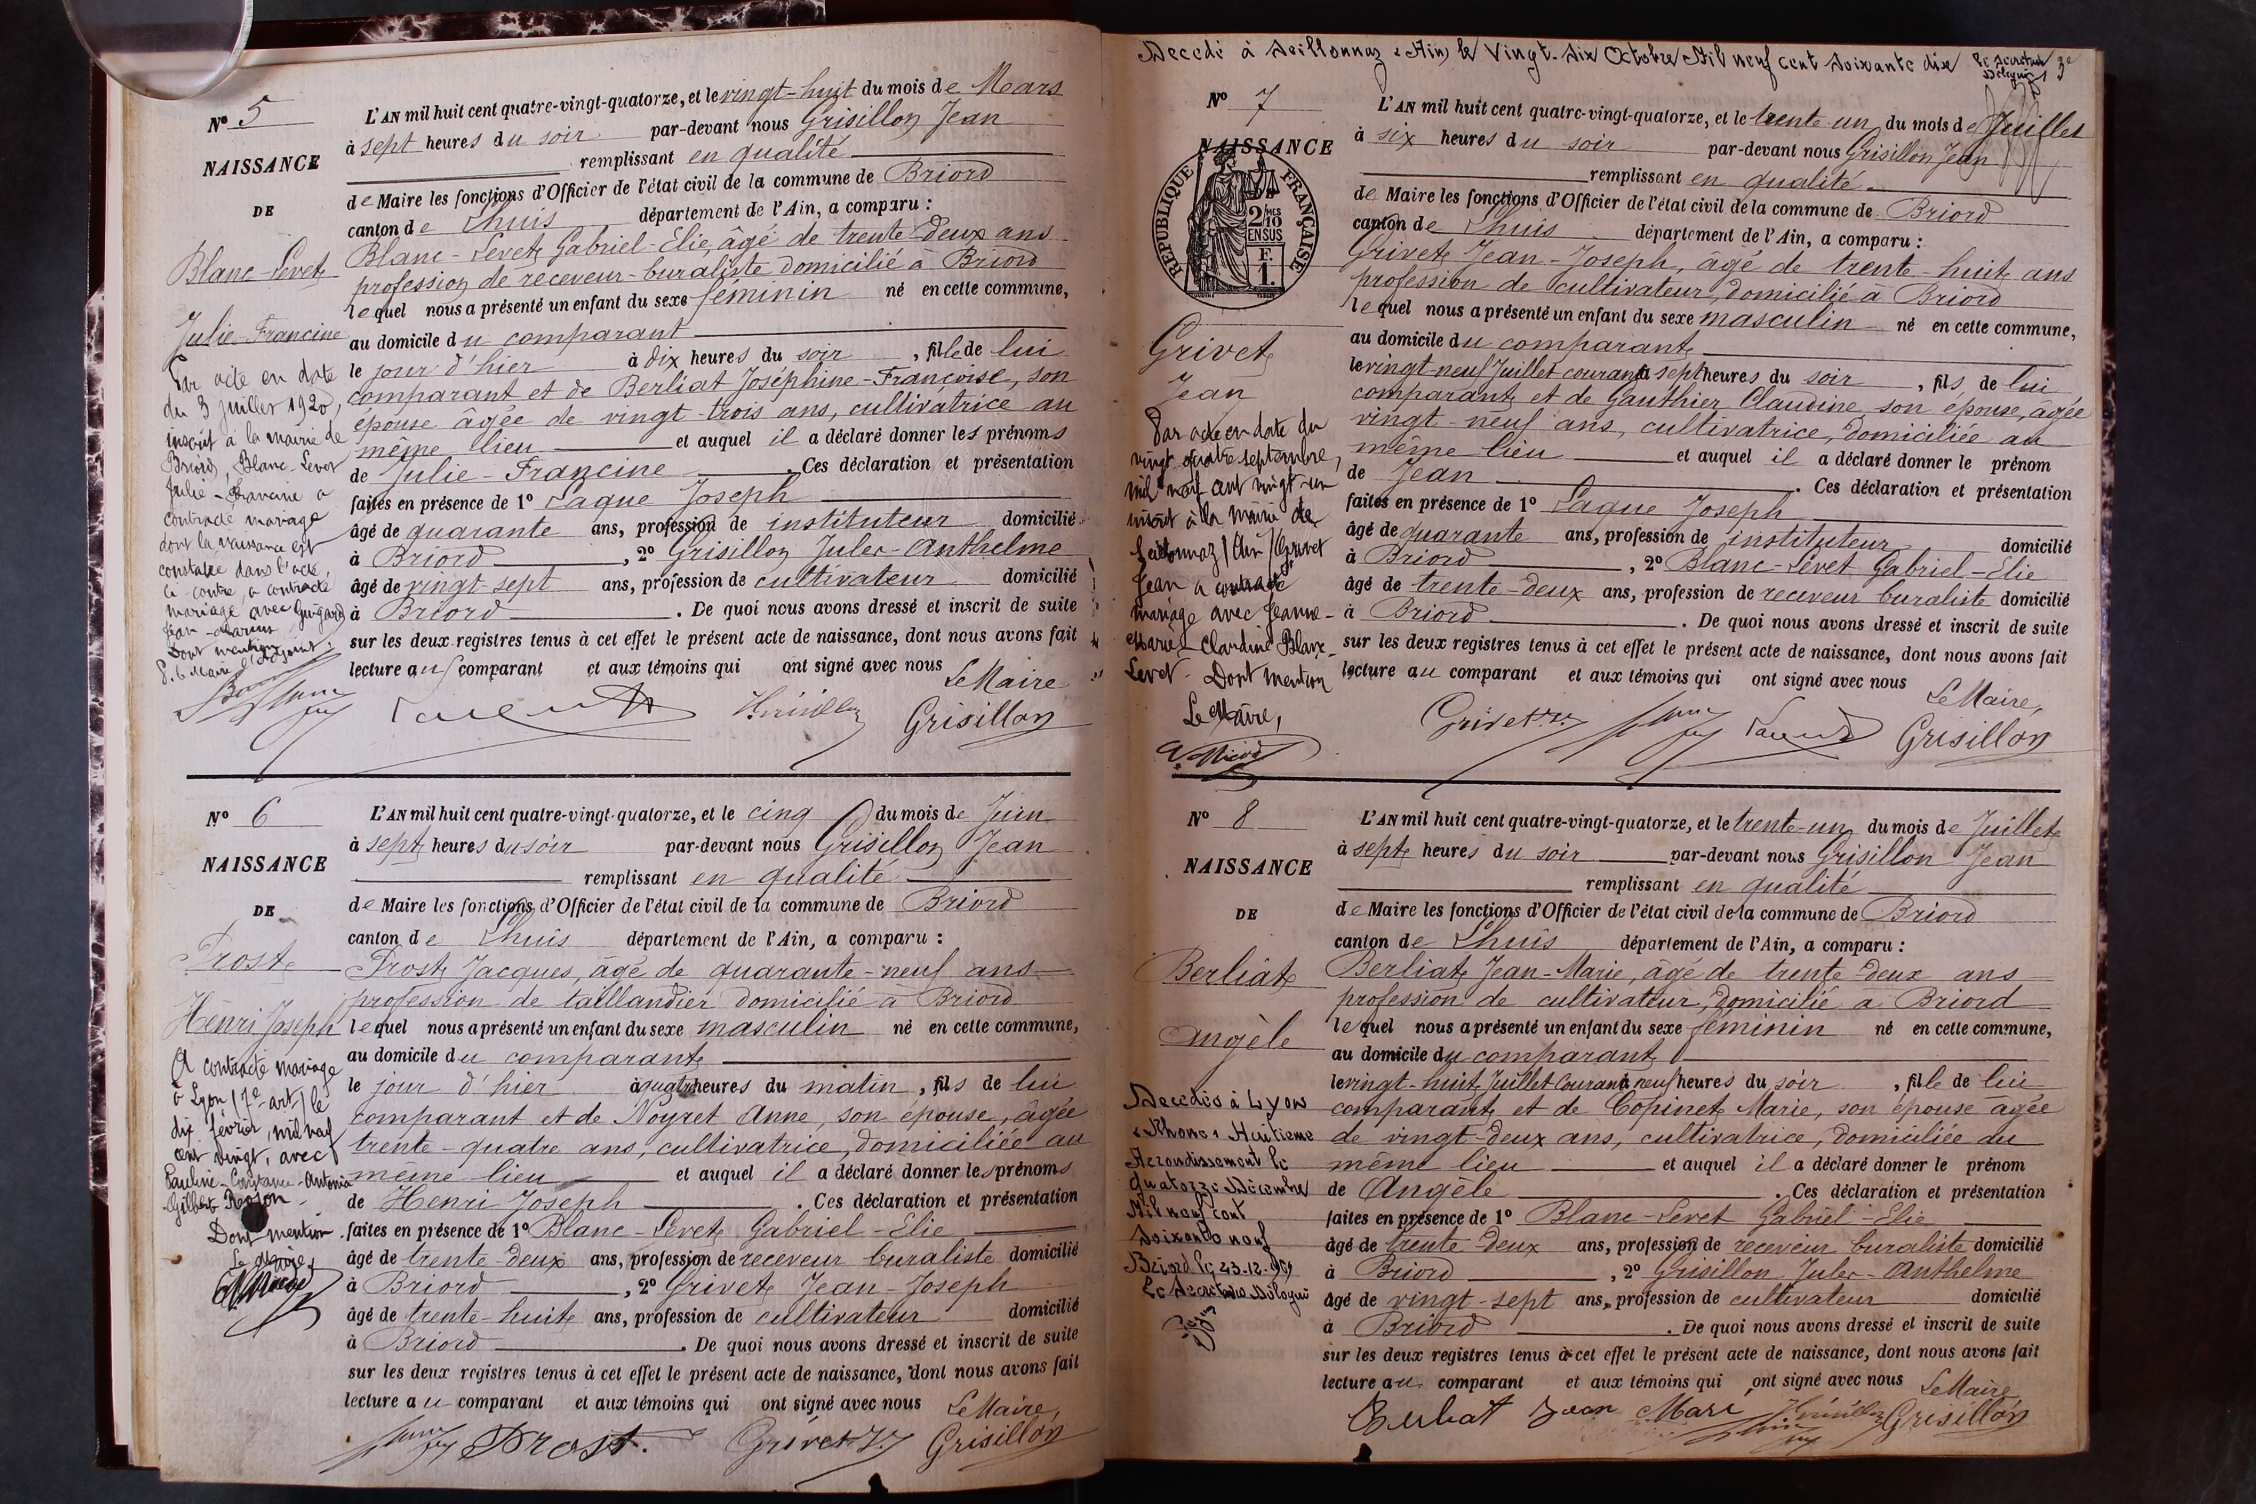 N° 5
NAISSANCE
DE
Blanc-Levet
Julie-Francine
Par acte en date
du 3 juillet 1920,
inscrit à la mairie de
Briord, Blanc-Levet
Julie-Francine a
contracté mariage
dont la naissance est
constatée dans l'acte
ci-contre, a contracté
mariage avec Guigard
Jean-Marius
Dont mention
P. le Maire l'Adjoint
L'AN mil huit cent quatre-vingt-quatorze, et le vingt-huit du mois de Mars
à sept heures du soir par-devant nous Grisillon Jean
remplissant en qualité
de Maire les fonctions d'Officier de l'état civil de la commune de Briord
canton de Lhuis département de l'Ain, a comparu :
Blanc-Levet Gabriel-Elie, âgé de trente-deux ans
profession de receveur-buraliste domicilié à Briord
lequel nous a présenté un enfant du sexe féminin né en cette commune,
au domicile du comparant
le jour d'hier à dix heures du soir, fille de lui
comparant et de Berliat Joséphine-Françoise, son
épouse âgée de vingt-trois ans, cultivatrice au
même lieu et auquel il a déclaré donner les prénoms
de Julie-Francine. Ces déclaration et présentation
faites en présence de 1° Laque Joseph
âgé de quarante ans, profession de instituteur domicilié
à Briord, 2° Grisillon Jules-Anthelme
âgé de vingt-sept ans, profession de cultivateur domicilié
à Briord. De quoi nous avons dressé et inscrit de suite
sur les deux registres tenus à cet effet le présent acte de naissance, dont nous avons fait
lecture au comparant et aux témoins qui ont signé avec nous
Le Maire
Grisillon
N° 6
NAISSANCE
DE
Prost
Henri Joseph
A contracté mariage
à Lyon (7e art) le
dix février, mil neuf
cent vingt, avec
Pauline-Constance-Antonia
Gilbert
Dont mention
Le Maire,
L'AN mil huit cent quatre-vingt-quatorze, et le cinq du mois de Juin
à sept heures du soir par-devant nous Grisillon Jean
remplissant en qualité
de Maire les fonctions d'Officier de l'état civil de la commune de Briord
canton de Lhuis département de l'Ain, a comparu :
Prost Jacques, âgé de quarante-neuf ans
profession de taillandier domicilié à Briord
lequel nous a présenté un enfant du sexe masculin né en cette commune,
au domicile du comparant
le jour d'hier à quatre heures du matin, fils de lui
comparant et de Noyret Anne, son épouse, âgée
trente-quatre ans, cultivatrice, domiciliée au
même lieu et auquel il a déclaré donner les prénoms
de Henri Joseph. Ces déclaration et présentation
faites en présence de 1° Blanc-Levet Gabriel-Elie
âgé de trente-deux ans, profession de receveur buraliste domicilié
à Briord, 2° Grivet Jean-Joseph
âgé de trente-huit ans, profession de cultivateur domicilié
à Briord. De quoi nous avons dressé et inscrit de suite
sur les deux registres tenus à cet effet le présent acte de naissance, dont nous avons fait
lecture au comparant et aux témoins qui ont signé avec nous
Le Maire,
Prost. Grivet Grisillon
Decedé à Seillonnaz (Ain) le Vingt-Six Octobre Mil neuf cent Soixante dix Le Secretaire
Délégué
3e
N° 7
NAISSANCE
REPUBLIQUE FRANÇAISE
2/10 MES
EN SUS
F.
1.
Grivet
Jean
Par acte en date du
vingt quatre septembre,
mil neuf cent vingt-un
inscrit à la mairie de
Seillonnaz (Ain) Grivet
Jean a contracté
mariage avec Jeanne-
Marie-Claudine Blanc-
Levet. Dont mention
Le Maire,
L'AN mil huit cent quatre-vingt-quatorze, et le trente-un du mois de Juillet
à six heures du soir par-devant nous Grisillon Jean
remplissant en qualité
de Maire les fonctions d'Officier de l'état civil de la commune de Briord
canton de Lhuis département de l'Ain, a comparu :
Grivet Jean-Joseph, âgé de trente-huit ans
profession de cultivateur, domicilié à Briord
lequel nous a présenté un enfant du sexe masculin né en cette commune,
au domicile du comparant
le vingt-neuf Juillet courant à sept heures du soir, fils de lui
comparant et de Gauthier Claudine, son épouse, âgée
vingt-neuf ans, cultivatrice, domiciliée au
même lieu et auquel il a déclaré donner le prénom
de Jean. Ces déclaration et présentation
faites en présence de 1° Laque Joseph
âgé de quarante ans, profession de instituteur domicilié
à Briord, 2° Blanc-Levet Gabriel-Elie
âgé de trente-deux ans, profession de receveur buraliste domicilié
à Briord. De quoi nous avons dressé et inscrit de suite
sur les deux registres tenus à cet effet le présent acte de naissance, dont nous avons fait
lecture au comparant et aux témoins qui ont signé avec nous
Le Maire,
Grivet Grisillon
N° 8
NAISSANCE
DE
Berliat
Angèle
Decedés à Lyon
(Rhone) Huitieme
Arrondissement le
Quatorze Décembre
Mil neuf cent
Soixante neuf
Briord le 23-12-1969
Le Secretaire Délégué
L'AN mil huit cent quatre-vingt-quatorze, et le trente-un du mois de Juillet
à sept heures du soir par-devant nous Grisillon Jean
remplissant en qualité
de Maire les fonctions d'Officier de l'état civil de la commune de Briord
canton de Lhuis département de l'Ain, a comparu :
Berliat Jean-Marie, âgé de trente-deux ans
profession de cultivateur, domicilié à Briord
lequel nous a présenté un enfant du sexe féminin né en cette commune,
au domicile du comparant
le vingt-huit Juillet courant à neuf heures du soir, fille de lui
comparant et de Copinet Marie, son épouse âgée
de vingt-deux ans, cultivatrice, domiciliée au
même lieu et auquel il a déclaré donner le prénom
de Angèle. Ces déclaration et présentation
faites en présence de 1° Blanc-Levet Gabriel-Elie
âgé de trente-deux ans, profession de receveur buraliste domicilié
à Briord, 2° Grisillon Jules-Anthelme
âgé de vingt-sept ans, profession de cultivateur domicilié
à Briord. De quoi nous avons dressé et inscrit de suite
sur les deux registres tenus à cet effet le présent acte de naissance, dont nous avons fait
lecture au comparant et aux témoins qui ont signé avec nous
Le Maire
Berliat Jean Mari Grisillon